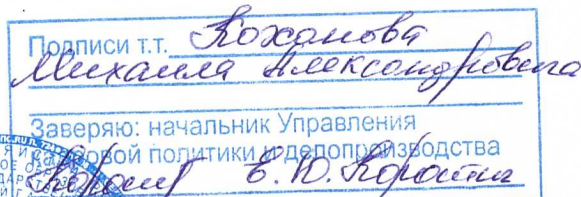 Подписи т.т. Коханова
Михаила Александровича
Заверяю: начальник Управления
кадровой политики и делопроизводства
Е.Ю.